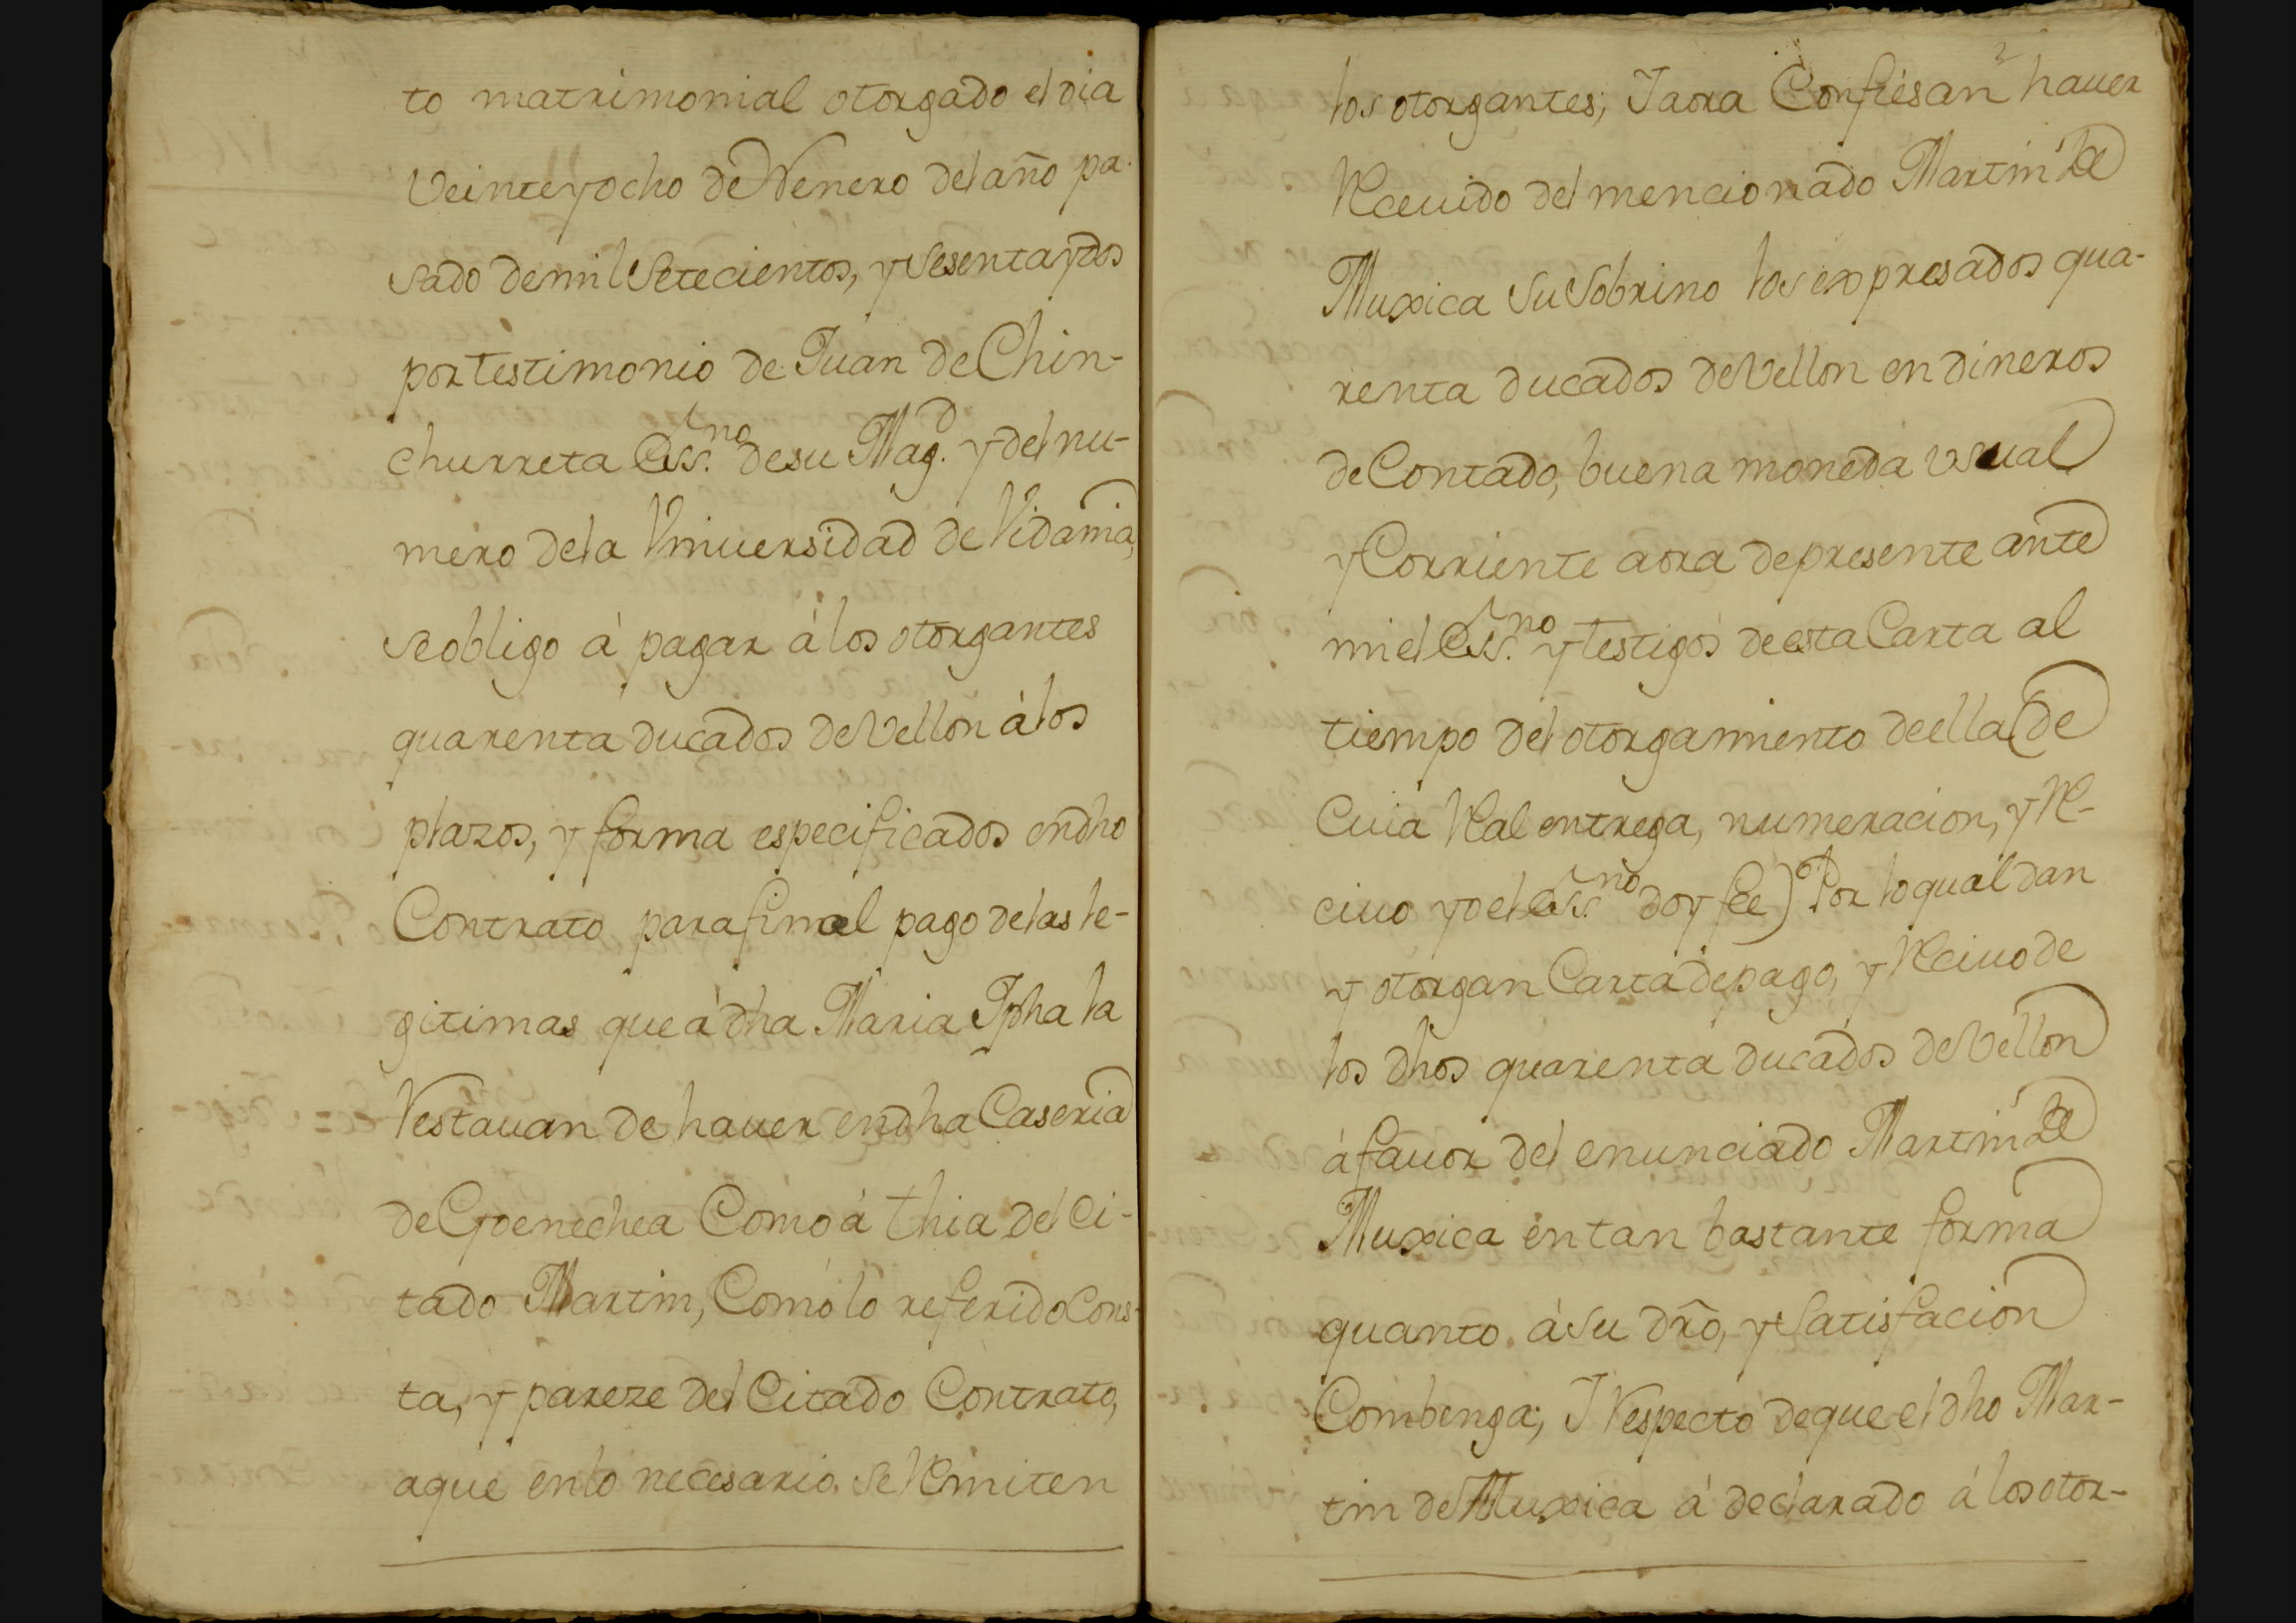 to matrimonial otorgado el dia
Veinte y ocho de Henero del año pa-
sado de mil Setecientos, y Sesenta y dos
por Testimonio de Juan de Chin-
churreta Ess.no de su Mag.d y del nu-
mero de la Vniuersidad de Vidania,
se obligo á pagar á los otorgantes
quarenta ducados de Vellon á los
plazos, y forma especificados en dho
Contrato para fin al pago de las le-
gitimas que á dha Maria Jpha la
Restauan de hauer en dha Caseria
de Goenechea Como á thia del Ci-
tado Martin, Como lo referido Cons-
ta, y pareze del Citado Contrato,
a que en lo necesario se Remiten
2
los otorgantes; I aora Confiesan hauer
Receuido del mencionado Martin de
Muxica su Sobrino los expresados qua-
renta ducados de Vellon en dineros
de Contado, buena moneda vsual
y Corriente aora de presente ante
mi el Ess.no y Testigos de esta Carta al
tiempo del otorgamiento de ella (de
Cuia Real entrega, numeracion, y Re-
ciuo yo el Ess.no doy fee) Por lo qual dan
y otorgan Carta de pago, y Reciuo de
los dhos quarenta ducados de Vellon
á fauor del enunciado Martin de
Muxica en tan bastante forma
quanto á su dro, y Satisfacion
Combenga; I Respecto de que el dho Mar-
tin de Muxica á declarado á los otor-